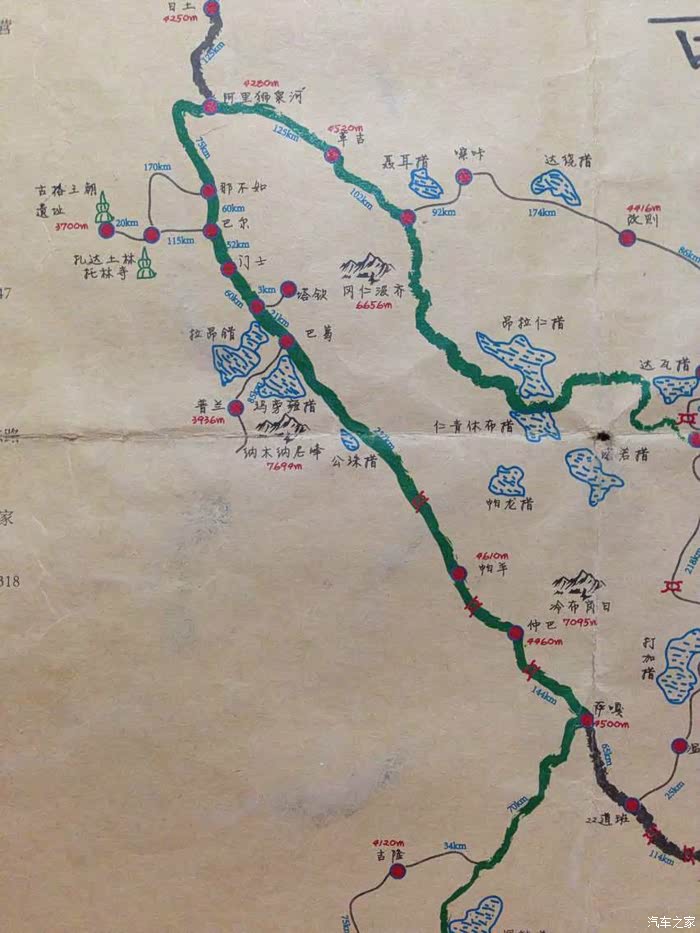 营
日土
4250m
125km
4280m
阿里狮泉河
75km
125km
4520m
革吉
聂耳措
嚓咔
达绕措
170km
那不如
102km
92km
174km
4416m
改则
86km
古格王朝
遗址
3700m
20km
115km
60km
巴尔
52km
扎达土林
托林寺
门士
冈仁波齐
6656m
47
60km
3km
塔钦
21km
巴嘎
拉昂错
昂拉仁措
达瓦措
85km
普兰
3936m
玛旁雍措
纳木纳尼峰
7694m
公珠措
仁青休布措
帕龙措
路
家
318
4610m
帕羊
冷布岗日
7095m
218km
仲巴
4460m
打
加
措
144km
萨嘎
4500m
65km
25km
22道班
70km
114km
4120m
吉隆
34km
75km
汽车之家